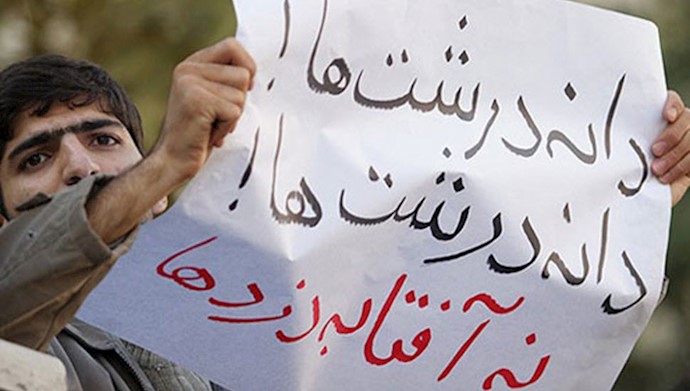 دانه درشت‌ها!
دانه درشت‌ها!
نه آفتابه دزدها